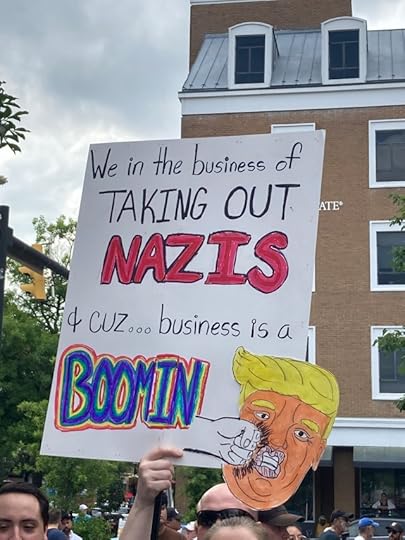 We in the business of
TAKING OUT
NAZIS
& CUZ... business is a
BOOMIN
ATE®